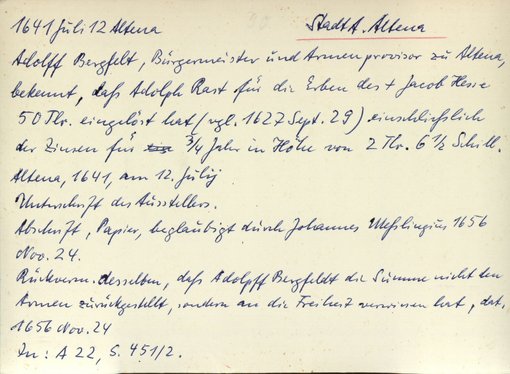 1641 Juli 12 Altena
StadtA. Altena
Adolff Bergfelt, Bürgermeister und Armenprovisor zu Altena,
bekennt, daß Adolph Rast für die Erben des + Jacob Hesse
50 Tlr. eingelöst hat (vgl. 1627 Sept. 29) einschließlich
der Zinsen für 3/4 Jahr in Höhe von 2 Tlr. 6 1/2 Schill.
Altena, 1641, am 12. Julij
Unterschrift des Ausstellers.
Abschrift, Papier, beglaubigt durch Johannes Meßlingius 1656
Nov. 24.
Rückverm. desselben, daß Adolpff Bergfeldt die Summe nicht den
Armen zurückgestellt, sondern an die Freiheit verwiesen hat, dat.
1656 Nov. 24
In: A 22, S. 451/2.